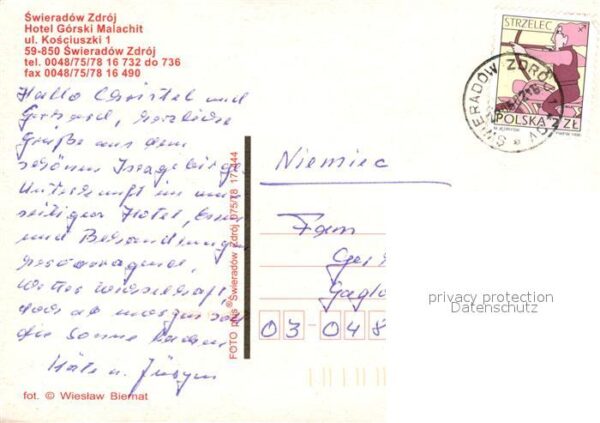 Świeradów Zdrój
Hotel Górski Malachit
ul. Kościuszki 1
59-850 Świeradów Zdrój
tel. 0048/75/78 16 732 do 736
fax 0048/75/78 16 490
Hallo Christel und
Gerhard, herzliche
Grüße aus dem
schönen Isergebirge
Unterkunft im
Hotel, Essen
und Behandlungen
hervorragend,
Wetter
ab morgen soll
die Sonne lachen
Käte u. Jürgen
fot. © Wiesław Biernat
FOTO plus® Świeradów Zdrój 075/78
STRZELEC
POLSKA 2 ZŁ
ŚWIERADÓW ZDRÓJ
Niemiec
Fam
Ger
03-048
privacy protection
Datenschutz